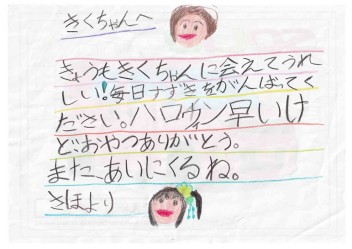 きくちゃんへ
きょうもきくちゃんに会えてうれ
しい!毎日すずきをがんばってく
ださい。ハロウィン早いけ
どおやつありがとう。
また、あいにくるね。
さほより